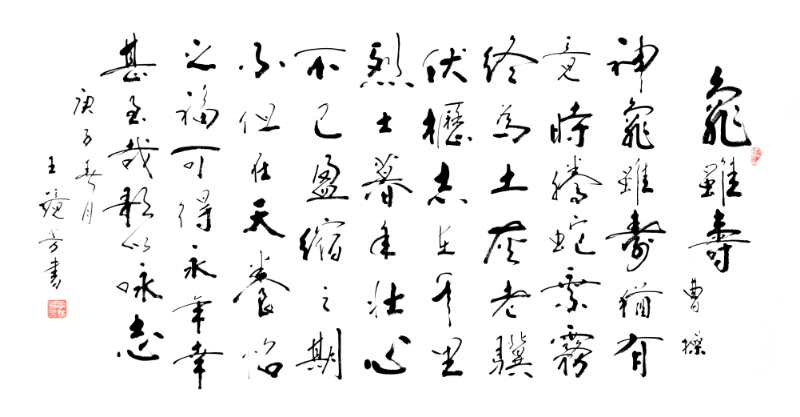 龜雖壽
曹操
神龜雖壽猶有
竟時騰蛇乘霧
終為土灰老驥
伏櫪志在千里
烈士暮年壯心
不已盈縮之期
不但在天養怡
之福可得永年幸
甚至哉歌以詠志
庚子春月
王芳書